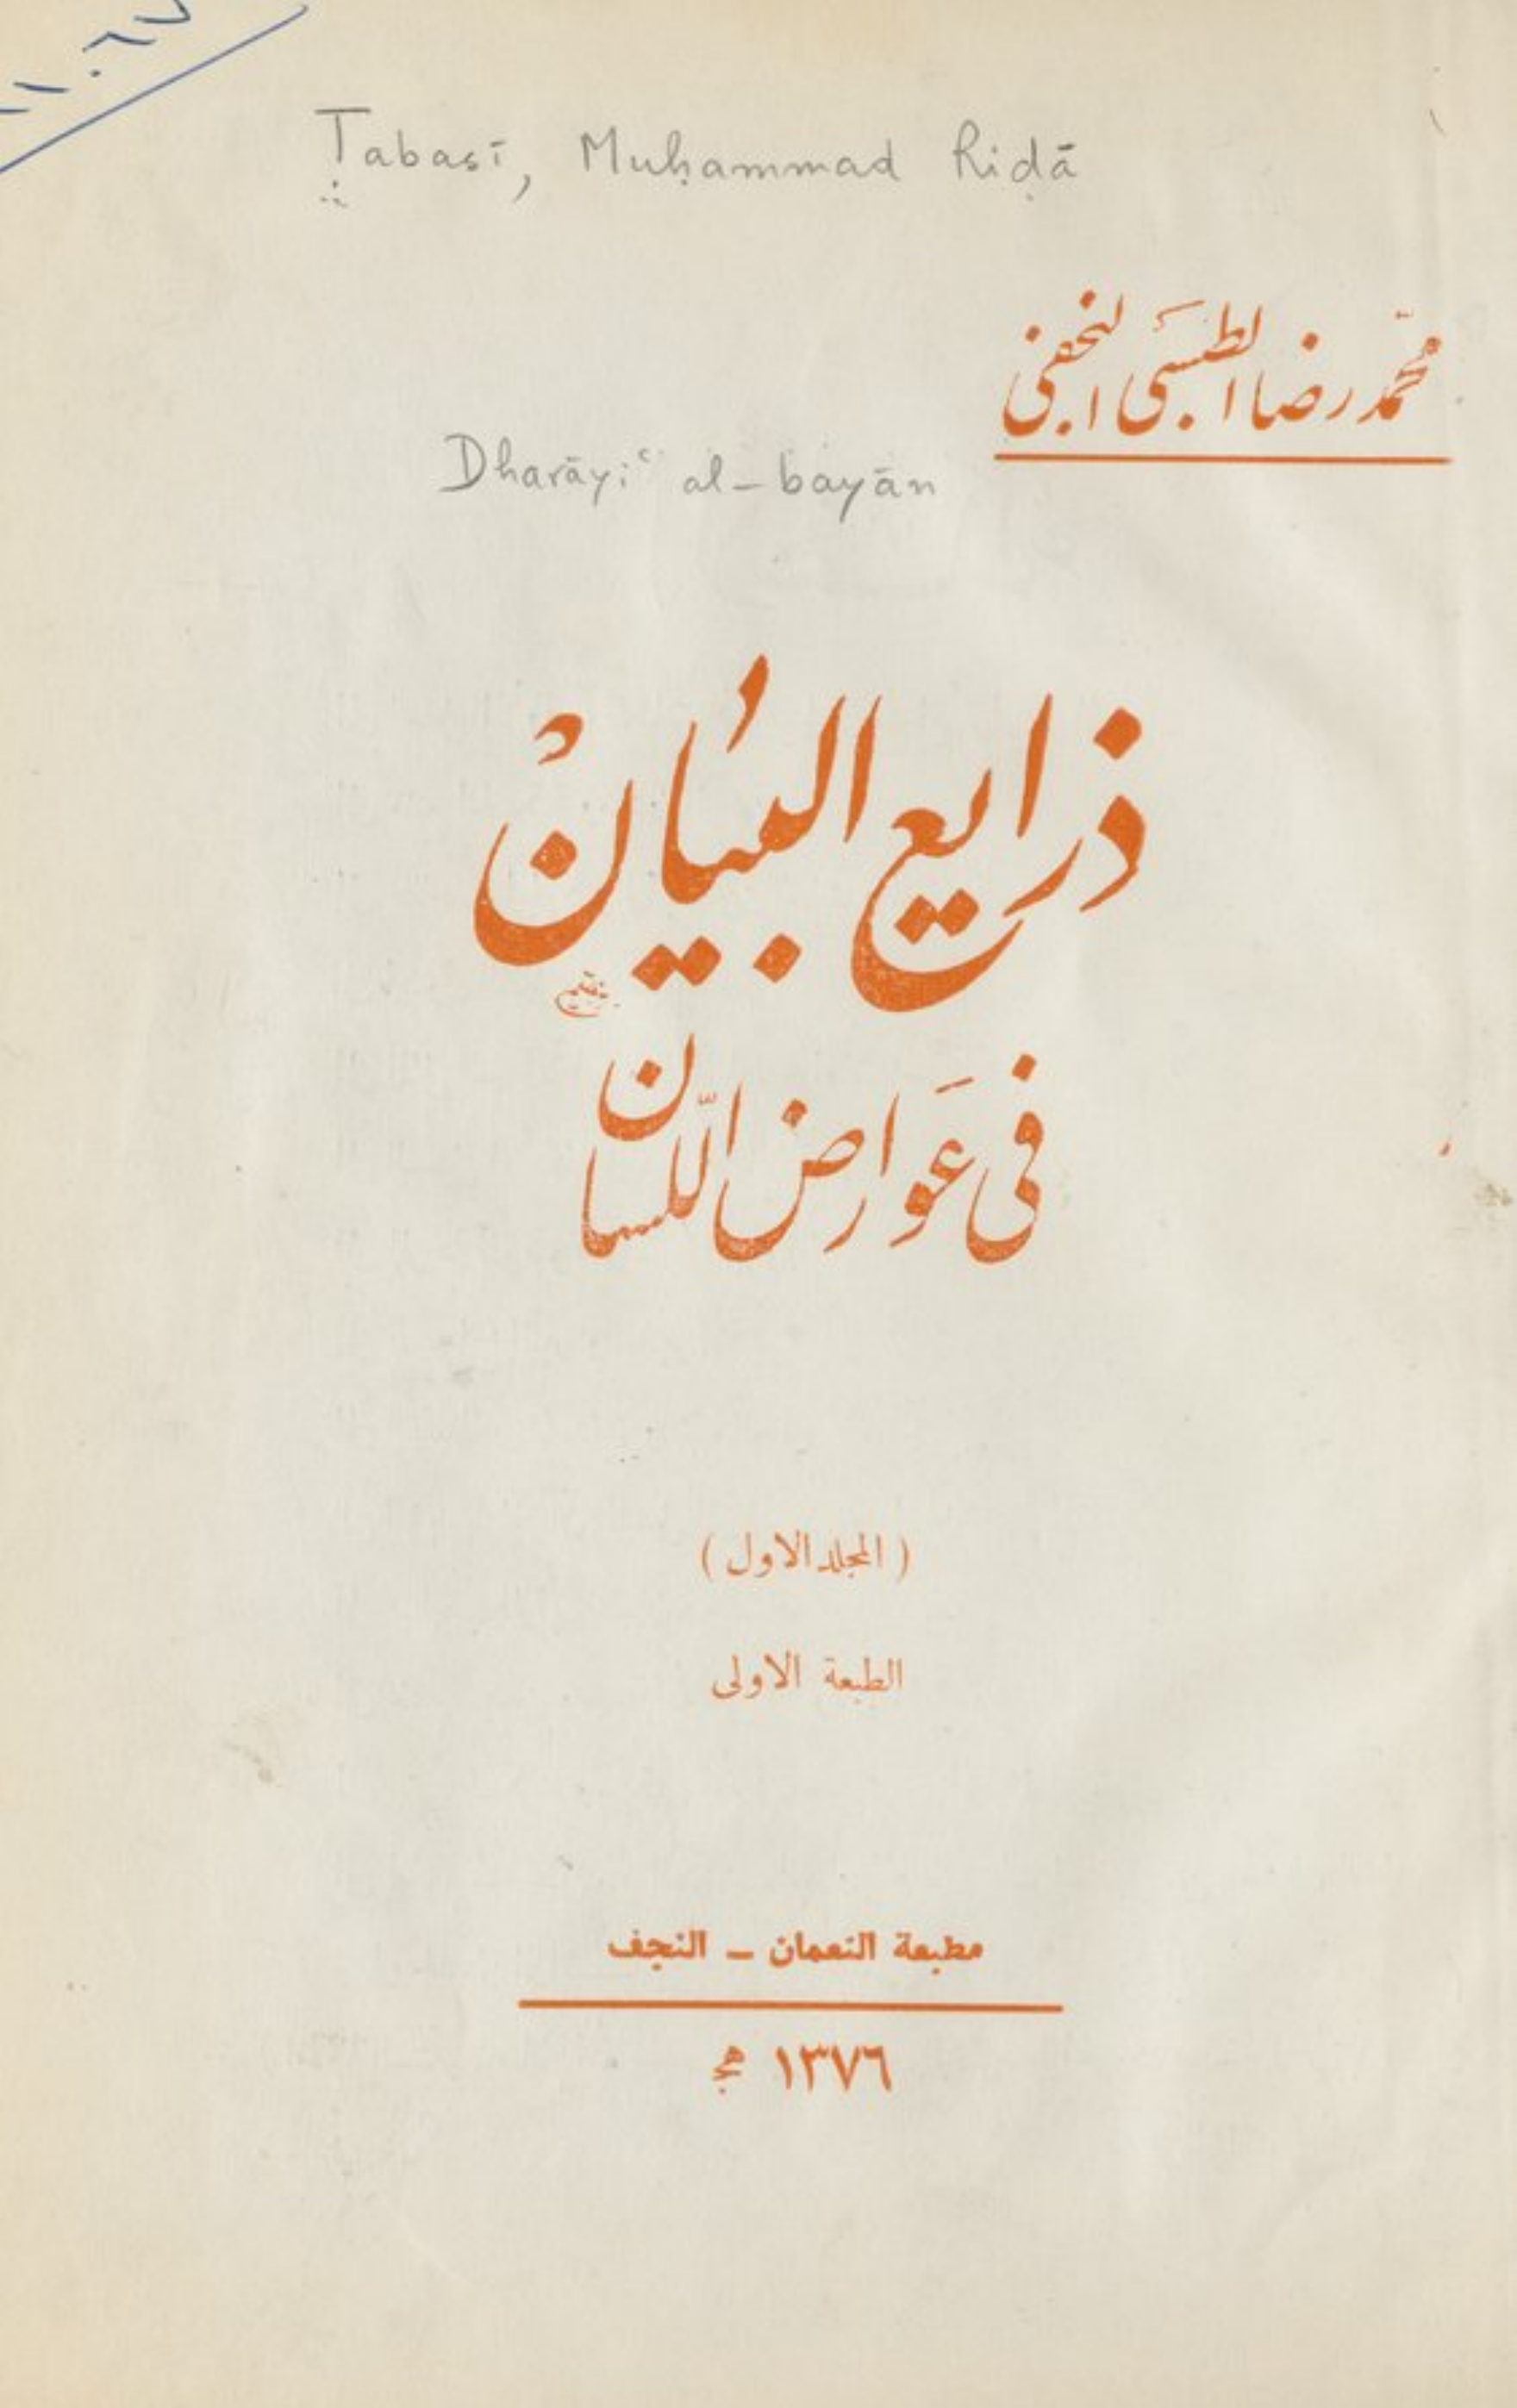 ١١٠٦٧
Ṭabasī, Muḥammad Riḍā
محمّد رضا الطبسَي النجفي
Dharāyiʿ al-bayān
ذرايع البيان
في عَوارض اللّسان
( المجلد الاول )
الطبعة الاولى
مطبعة النعمان — النجف
١٣٧٦ هج